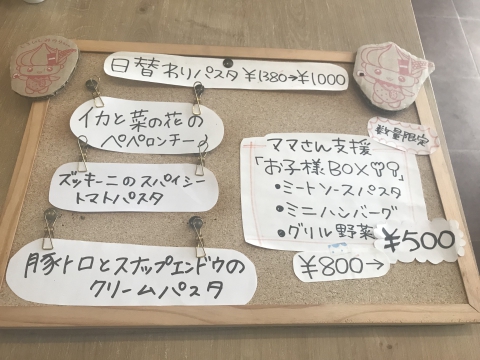 日替わりパスタ ¥1380→¥1000
イカと菜の花の
ペペロンチーノ
ズッキーニのスパイシー
トマトパスタ
豚トロとスナップエンドウの
クリームパスタ
数量限定
ママさん支援
「お子様BOX♡♡」
・ミートソースパスタ
・ミニハンバーグ
・グリル野菜
¥800→
¥500